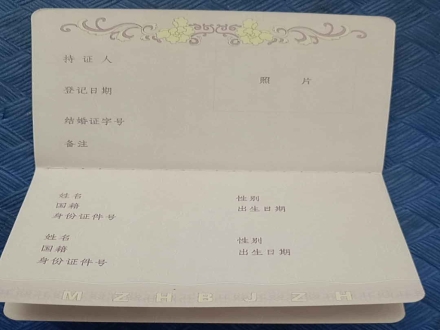 持证人
照 片
登记日期
结婚证字号
备注
姓名 性别
国籍 出生日期
身份证件号
姓名 性别
国籍 出生日期
身份证件号